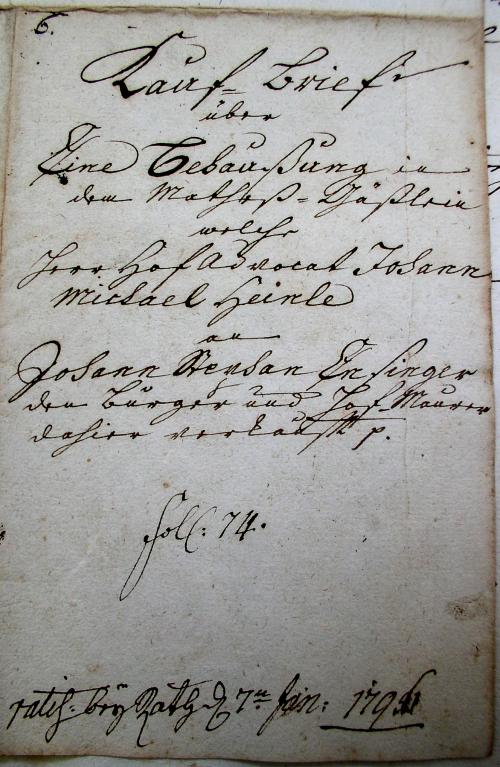 6.
Kauf-Brief
über
Eine Behaußung in
dem Mathes-Gäßlein
welche
Herr Hof Advocat Johann
Michael Heinle
an
Johann Stephan Ensinger
den Bürger und Hof-Maurer
dahier verkaufft p.
foll: 74.
ratif: bey Rath d 7ten Jan: